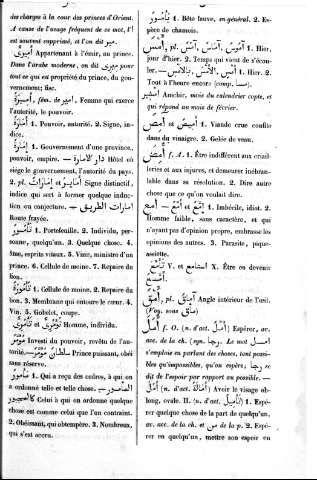 des charges à la cour des princes d'Orient.
A cause de l'usage fréquent de ce mot, l'I
est souvent supprimé, et l'on dit مير.
أميرى Appartenant à l'émir, au prince.
Dans l'arabe moderne, on dit ميرى pour
tout ce qui est propriété du prince, du gou-
vernement; fisc.
أميرة, fém. de امير. Femme qui exerce
l'autorité, le pouvoir.
أمارة 1. Pouvoir, autorité. 2. Signe, in-
dice.
إمارة 1. Gouvernement d'une province,
pouvoir, empire. — دار الامارة Hôtel où
siège le gouvernement, l'autorité du pays.
2. pl. إمارات Signe distinctif,
indice qui sert à former quelque induc-
tion ou conjecture. — امارات الطريق
Route frayée.
تامور 1. Portefeuille. 2. Individu, per-
sonne, quelqu'un. 3. Quelque chose. 4.
Ame, esprit vitaux. 5. Vizir, ministre d'un
prince. 6. Cellule de moine. 7. Repaire du
lion.
تامورة 1. Cellule de moine. 2. Repaire du
lion. 3. Membrane qui entoure le cœur. 4.
Vin. 5. Gobelet, coupe.
Homme, individu.
مؤمر Investi du pouvoir, revêtu de l'au-
torité.— سلطان مؤمر Prince puissant, obéi
sans réserve.
مامور 1. Qui a reçu des ordres, à qui on
a ordonné telle et telle chose. —
Celui à qui on ordonne quelque
chose est comme celui que l'on contraint.
2. Obéissant, qui obtempère. 3. Nombreux,
qui s'est accru.
يامور 1. Bête fauve, en général. 2. Es-
pèce de chamois.
أمس, pl. آمس, آماس, أموس 1. Hier,
jour d'hier. 2. Temps qui vient de s'écou-
ler. — أمس, الأمس, بالأمس 1. Hier. 2.
Tout à l'heure encore (comp. مسا).
أمشير Amchir, mois du calendrier copte, et
qui répond au mois de février.
آمص et آميص 1. Viande crue confite
dans du vinaigre. 2. Gelée de veau.
أمض f. A. 1. Être indifférent aux criail-
leries et aux injures, et demeurer inébran-
lable dans sa résolution. 2. Dire autre
chose que ce qu'on voulait dire.
أمع — إمع et إمعة 1. Imbécile, idiot. 2.
Homme faible, sans caractère, et qui
n'ayant pas d'opinion propre, embrasse les
opinions des autres. 3. Parasite, pique-
assiette.
تأمع V. et استامع X. Être ou devenir
إمعة.
أمق, pl. آماق Angle intérieur de l'œil.
(Voy. sous ماق)
أمل f. O. (n. d'act. أمل) Espérer, av.
acc. de la ch. (syn. رجا. Le mot امل
s'emploie en parlant des choses, tant possi-
bles qu'impossibles, qu'on espère; رجا se
dit de l'espoir par rapport au possible. —
(n. d'act. أمالة) Avoir le visage ob-
long, ovale. II. (n. d'act. تأميل) 1. Espé-
rer quelque chose de la part de quelqu'un,
av. acc. de la ch. et من de la p. 2. Espé-
rer en quelqu'un, mettre son espoir en